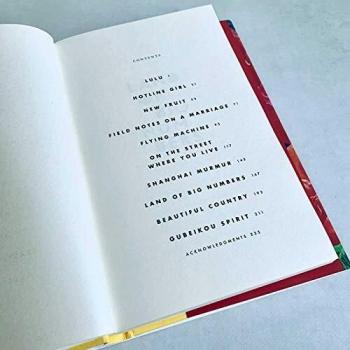 CONTENTS
LULU 1
HOTLINE GIRL
NEW FRUIT
FIELD NOTES ON A MARRIAGE 71
FLYING MACHINE
ON THE STREET
WHERE YOU LIVE 117
SHANGHAI MURMUR 143
LAND OF BIG NUMBERS 167
BEAUTIFUL COUNTRY 193
GUBEIKOU SPIRIT 211
ACKNOWLEDGMENTS 235